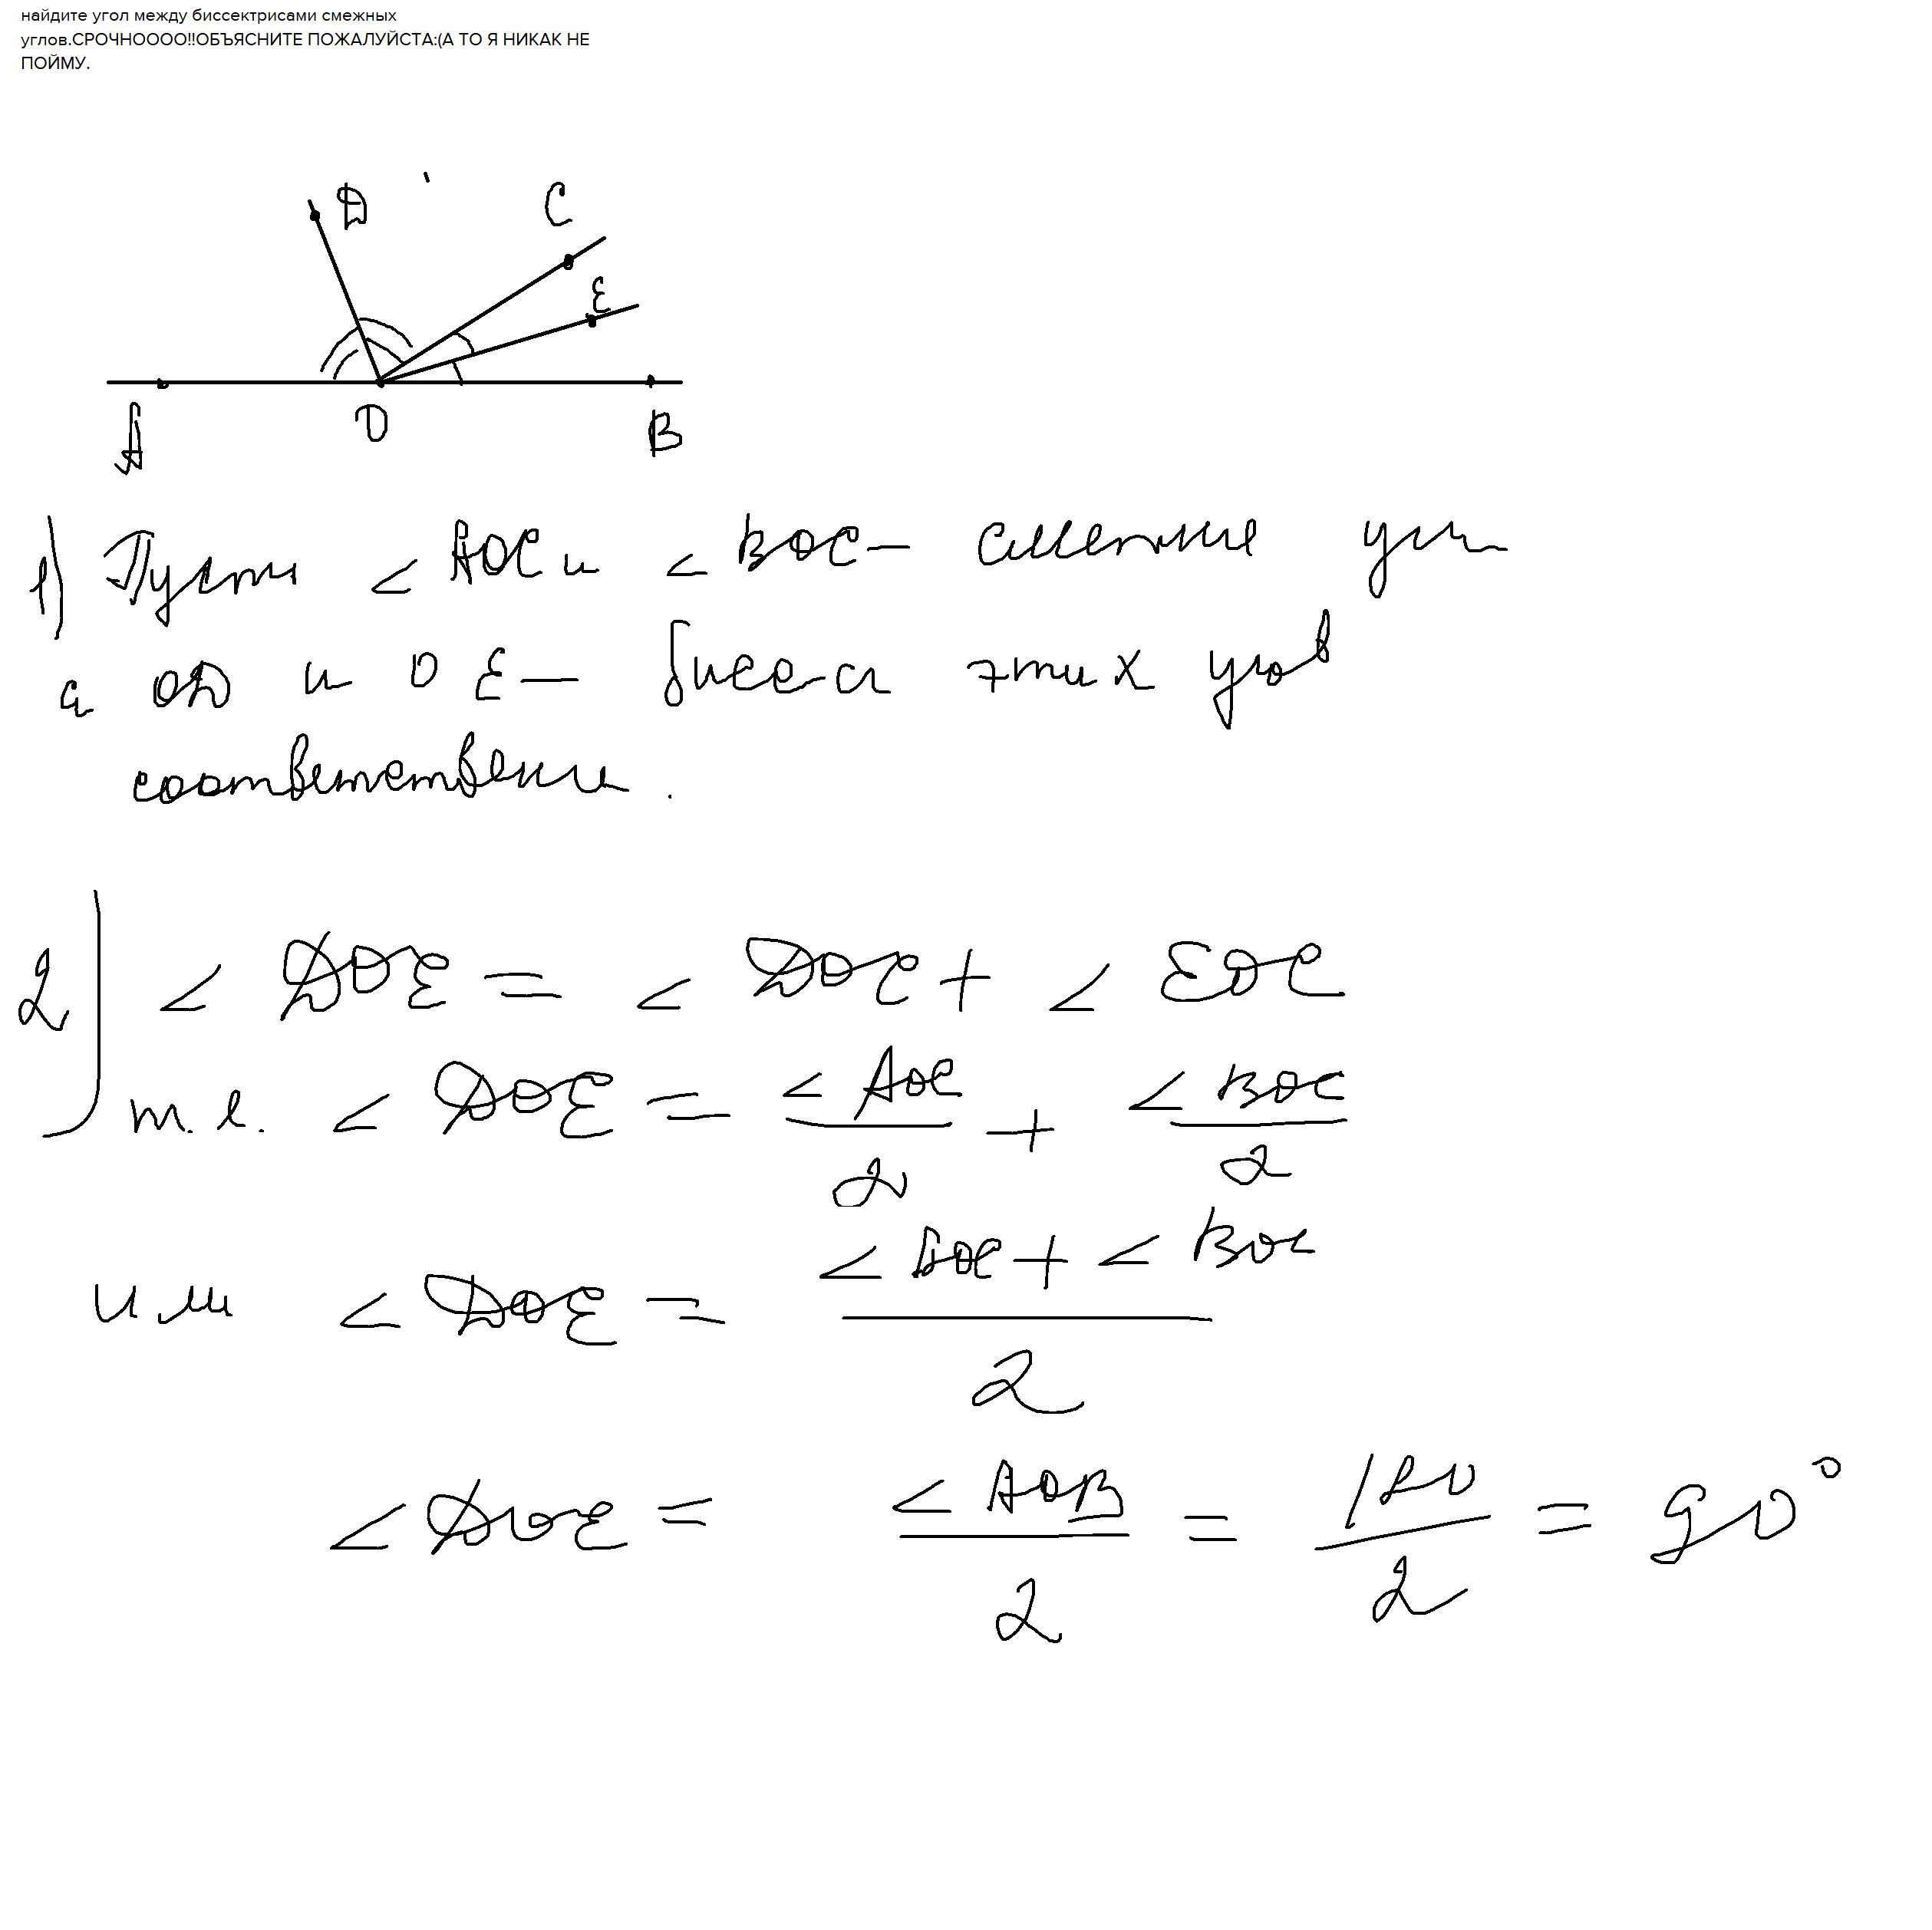 найдите угол между биссектрисами смежных
углов.СРОЧНОООО!!ОБЪЯСНИТЕ ПОЖАЛУЙСТА:(А ТО Я НИКАК НЕ
ПОЙМУ.
D C
E
A O B
1) Пусть < AOC и < BOC - смежные углы
а OD и OE - бисс-сы этих углов
соответственно.
2) < DOE = < DOC + < EOC
т.е. < DOE = < AOC / 2 + < BOC / 2
или < DOE = < AOC + < BOC / 2
< DOE = < AOB / 2 = 180 / 2 = 90°